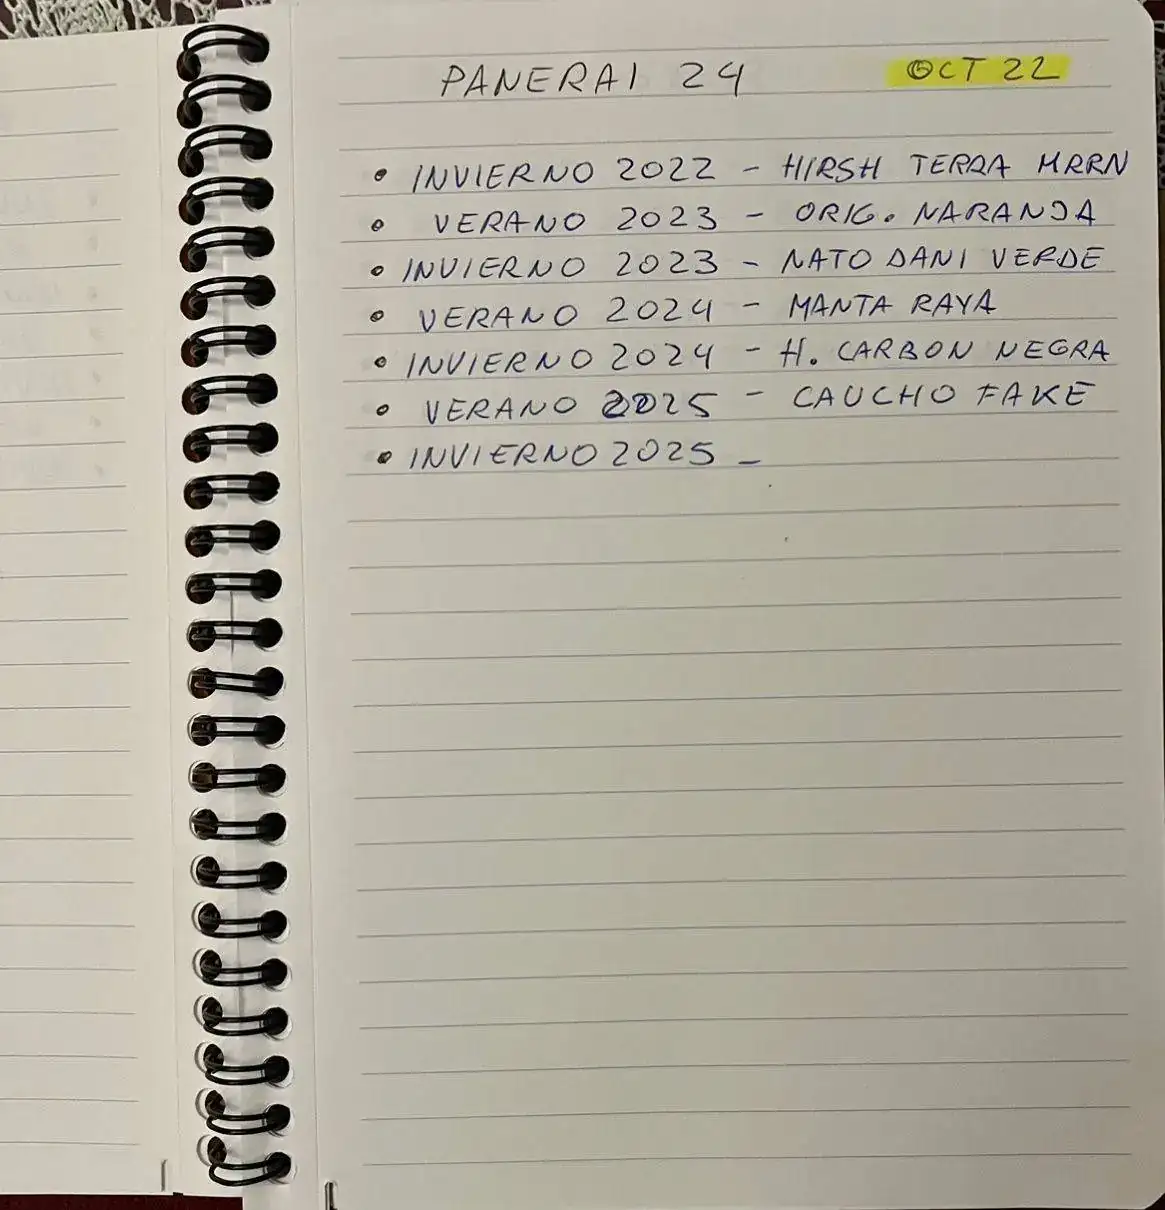 PANERAI 24 OCT 22
• INVIERNO 2022 - HIRSH TERRA MRRN
• VERANO 2023 - ORIG. NARANJA
• INVIERNO 2023 - NATO DANI VERDE
• VERANO 2024 - MANTA RAYA
• INVIERNO 2024 - H. CARBON NEGRA
• VERANO 2025 - CAUCHO FAKE
• INVIERNO 2025 -